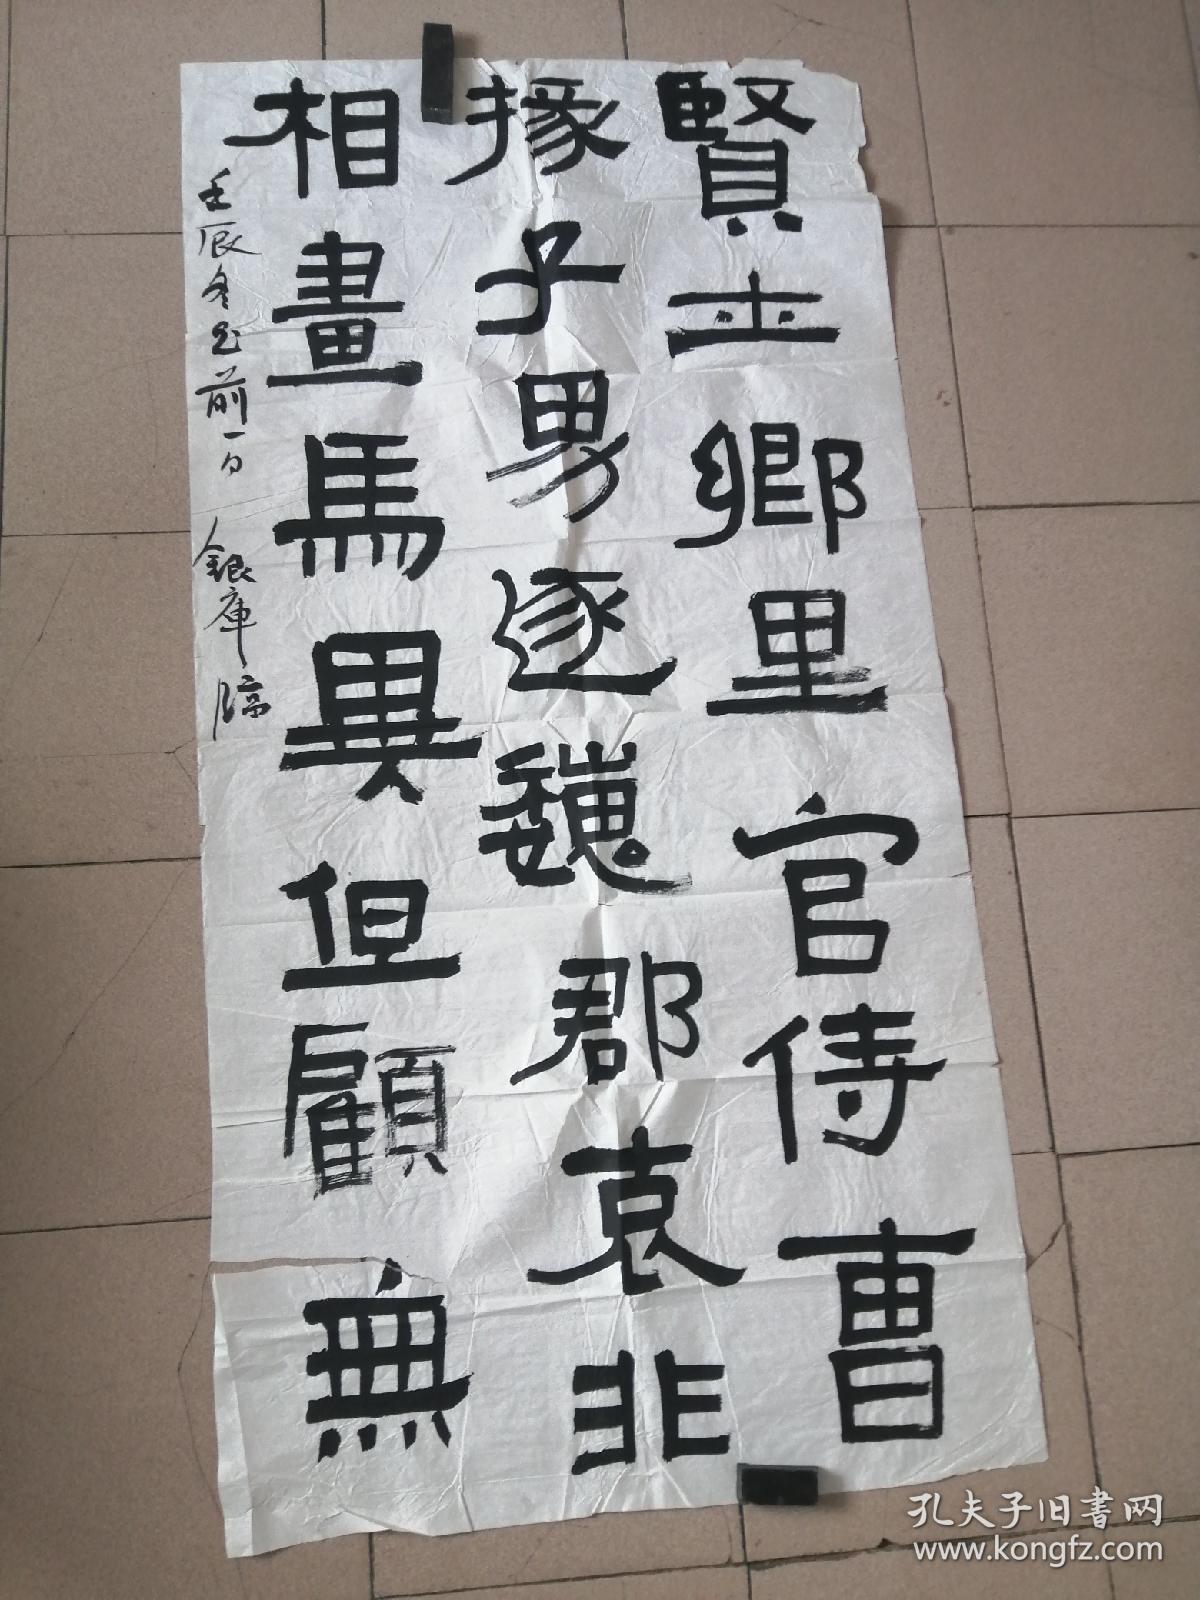 賢士鄉里官侍曹
掾子男逐魏郡哀非
相畫馬異但顧無
壬辰冬至前一日 銀庫臨
孔夫子旧書网
www.kongfz.com